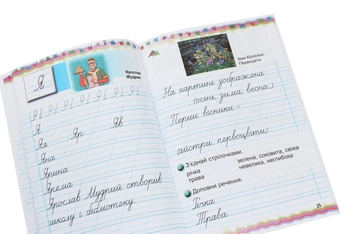 Я
Ярослав
Мудрий
Я Я Я Я Я Я Я
Я
Яє Яр Яв
Яна
Ярина
Ярема
Ярослав Мудрий створив
школу і бібліотеку.
Іван Колісник
Первоцвіти
На картині зображена
осінь, зима, весна.
Перші вісники –
айстри, первоцвіти.
З'єднай стрілочками.
річка зелена, соковита, свіжа
трава невелика, неглибока
Доповни речення.
Річка
Трава
25